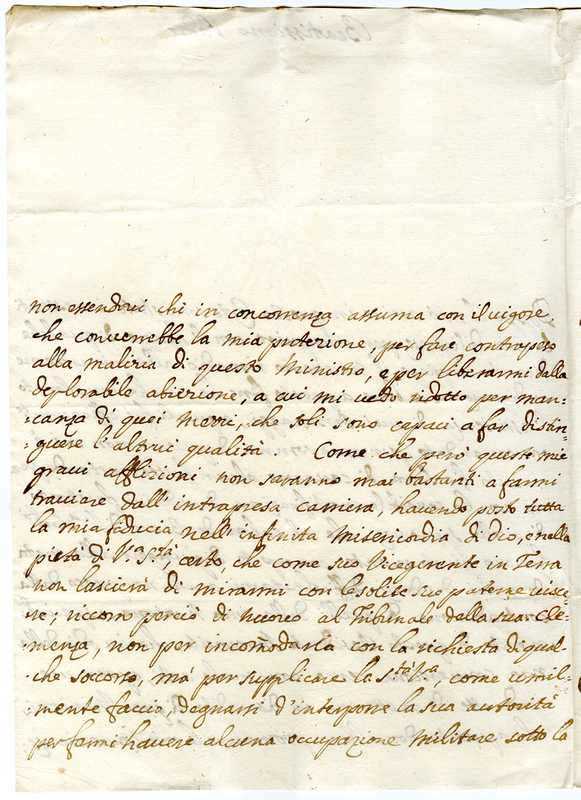 non essendovi chi in concorrenza assuma con il vigore,
che converrebbe la mia protezione, per fare contrapeso
alla malizia di questo Ministro, e per liberarmi dalla
deplorabile abiezione, a cui mi vedo ridotto per man-
canza di quei Mezzi, che soli sono capaci a far distin-
guere l'altrui qualità. Come che però queste mie
gravi afflizioni non saranno mai bastanti a farmi
traviare dall'intrapresa carriera, havendo posto tutta
la mia fiducia nell'infinita Misericordia di Dio, e nella
pietà di V.ra S.tà, certo, che come suo Vicegerente in Terra
non lascierà di mirarmi con le solite sue paterne visce-
re; ricorro perciò di nuovo al Tribunale della sua Cle-
menza, non per incomodarla con la richiesta di qual-
che soccorso, mà per supplicare la S.tà V.ra, come umil-
mente faccio, degnarsi d'interporre la sua autorità
per farmi havere alcuna occupazione Militare sotto la